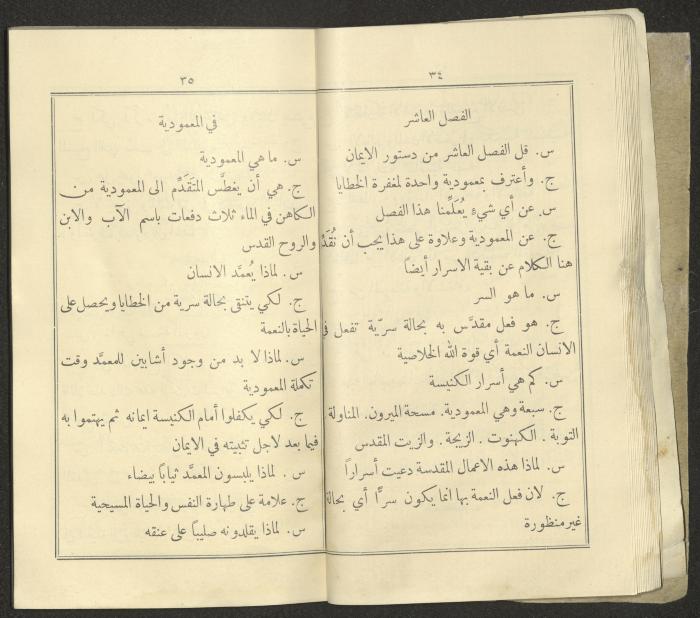 ٣٤
الفصل العاشر
س. قل الفصل العاشر من دستور الايمان
ج. وأعترف بمعمودية واحدة لمغفرة الخطايا
س. عن أي شيءٍ يُعَلِّمنا هذا الفصل
ج. عن المعمودية وعلاوة على هذا يجب أن نُقَدِّ
هنا الكلام عن بقية الاسرار أيضاً
س. ما هو السر
ج. هو فعل مقدَّس به بحالة سرّية تفعل في
الانسان النعمة أي قوة الله الخلاصية
س. كم هي أسرار الكنيسة
ج. سبعة وهي المعمودية. مسحة الميرون. المناولة
التوبة. الكهنوت. الزيجة. والزيت المقدس
س. لماذا هذه الاعمال المقدسة دعيت أسراراً
ج. لان فعل النعمة بها انما يكون سرًّا أي بحالة
غير منظورة
٣٥
في المعمودية
س. ما هي المعمودية
ج. هي أن يغطَّس المتَقَدِّم الى المعمودية من
الكاهن في الماء ثلاث دفعات باسم الآب والابن
والروح القدس
س. لماذا يُعمَّد الانسان
ج. لكي يتنقى بحالة سرية من الخطايا ويحصل على
الحياة بالنعمة
س. لماذا لا بد من وجود أشابين للمعمَّد وقت
تكملة المعمودية
ج. لكي يكفلوا أمام الكنيسة ايمانه ثم يهتموا به
فيما بعد لاجل تثبيته في الايمان
س. لماذا يلبسون المعمَّد ثياباً بيضاء
ج. علامة على طهارة النفس والحياة المسيحية
س. لماذا يقلدونه صليباً على عنقه